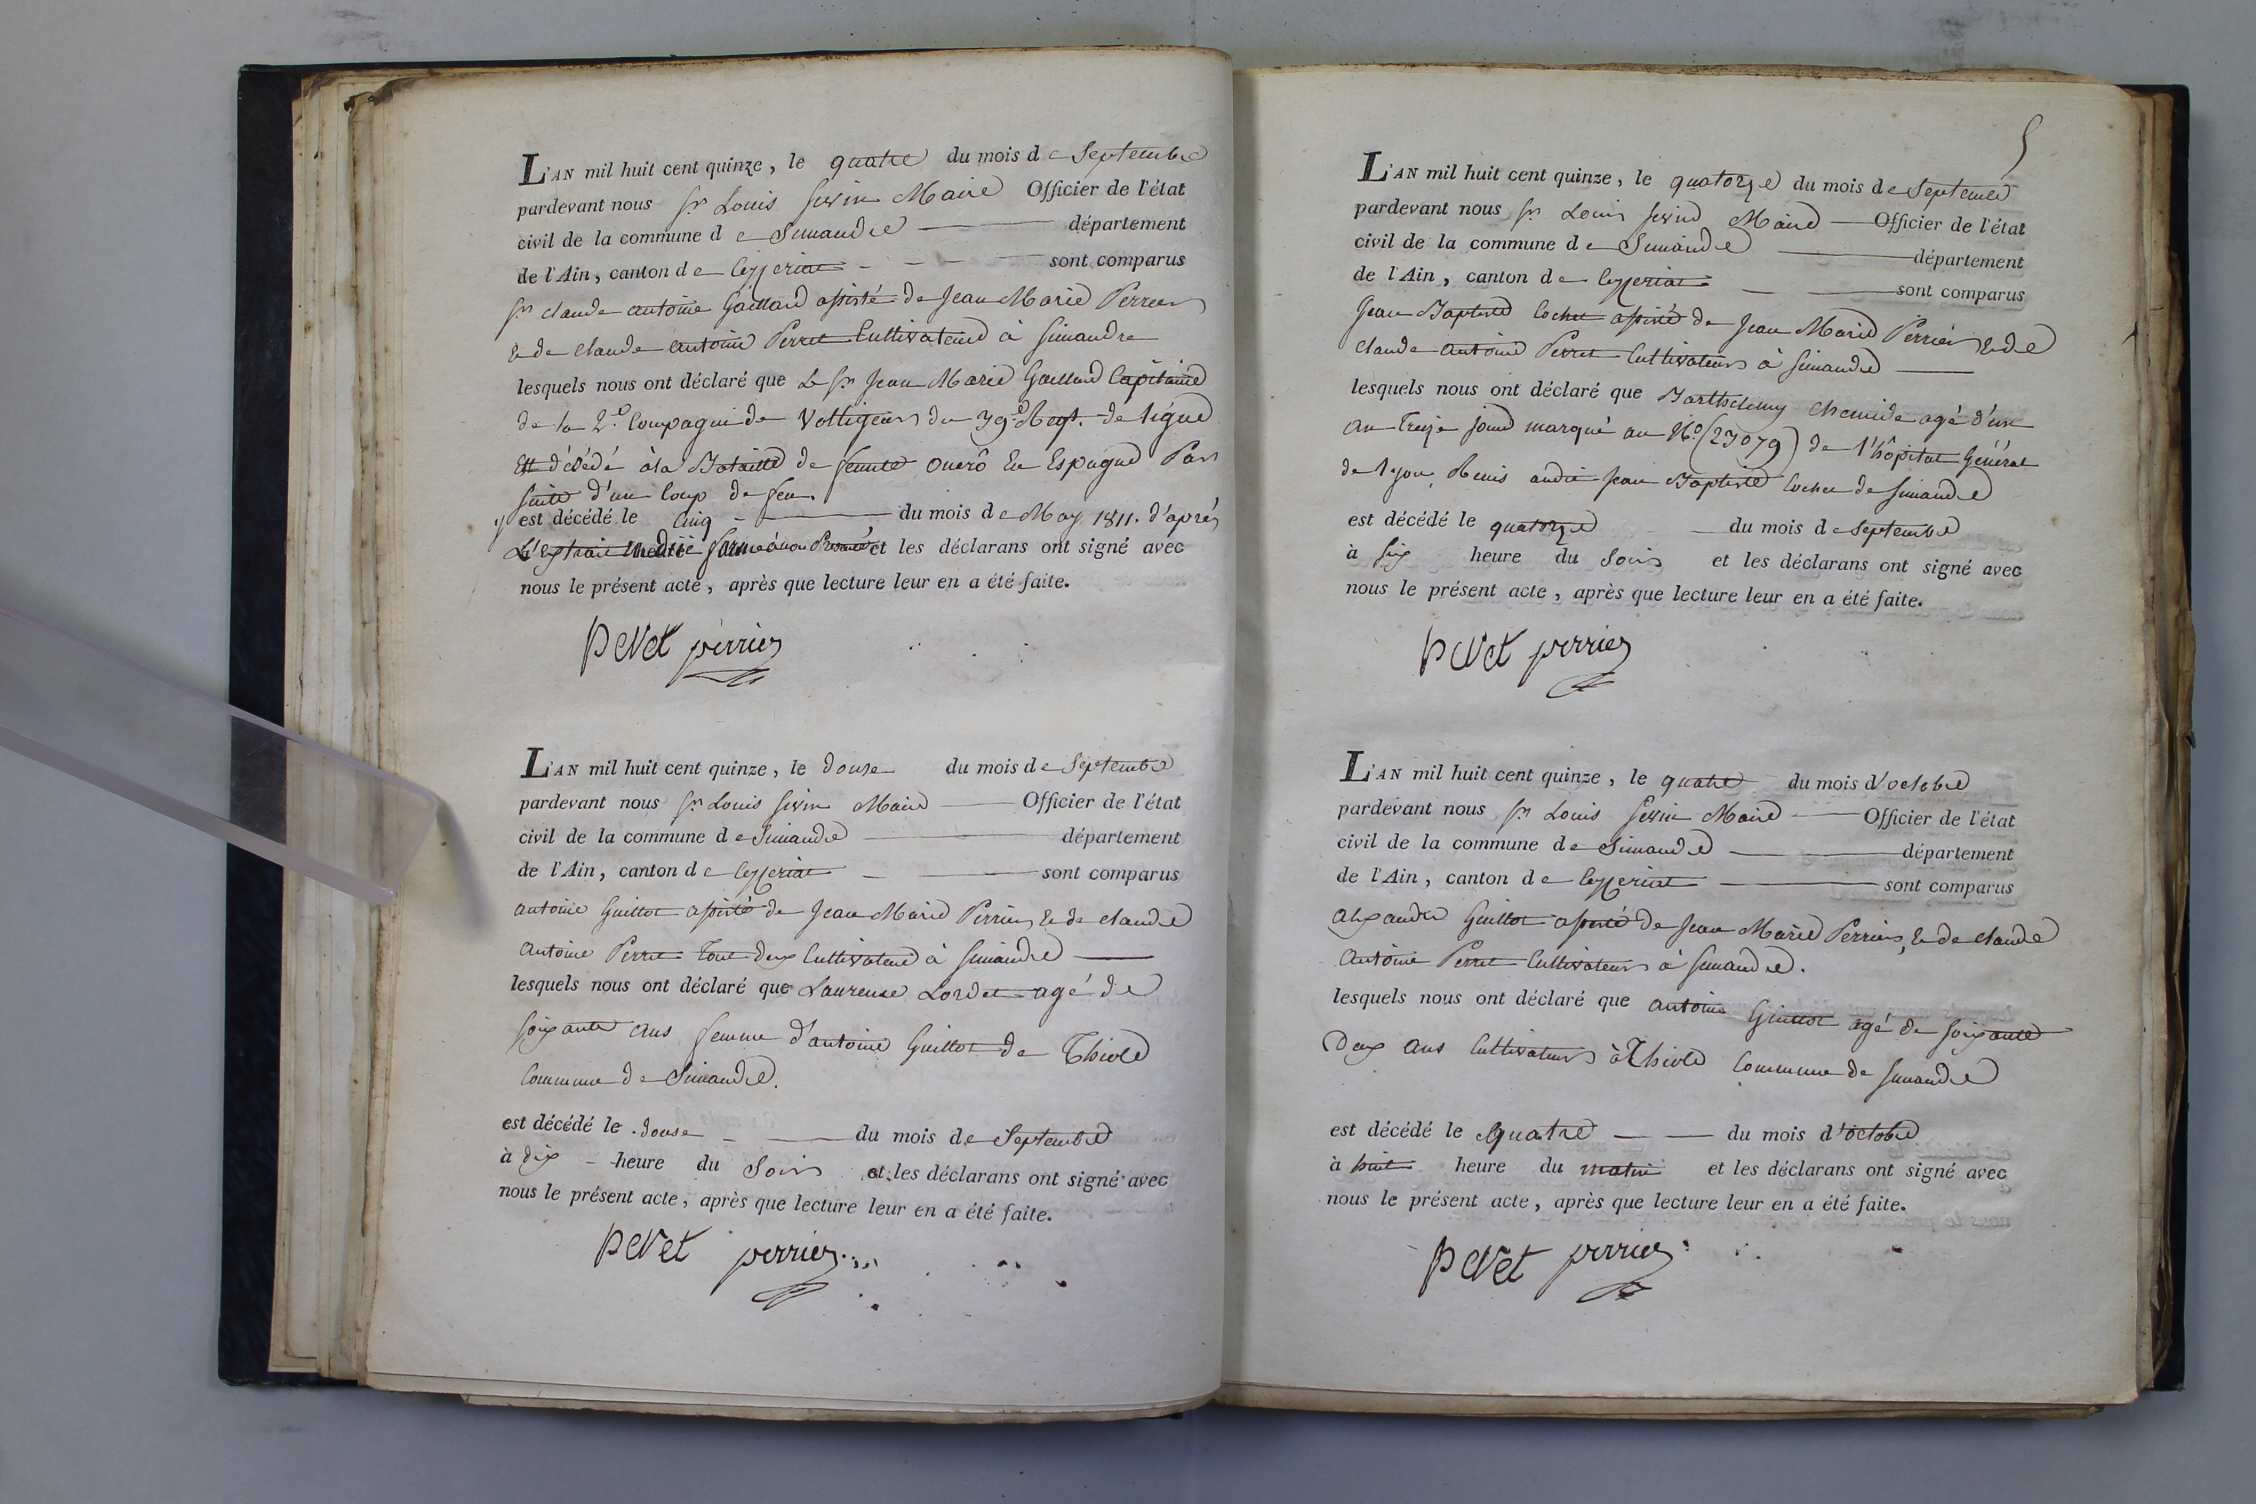 L'AN mil huit cent quinze, le quatre du mois de Septembre
pardevant nous Sr Louis Sevin Maire Officier de l'état
civil de la commune de Simandre département
de l'Ain, canton de Ceyzeriat sont comparus
Sr claude antoine Gaillard assisté de Jean Marie Perrier
& de claude antoine Perret Cultivateurs à Simandre
lesquels nous ont déclaré que Le Sr Jean Marie Gaillard Capitaine
de la 2e Compagnie de Voltigeurs du 39e Regt. de ligne
Est décédé à la Bataille de Onerô En Espagne Par
suite d'un Coup de feu.
est décédé le Cinq du mois de May 1811. d'après
L'extrait et les déclarans ont signé avec
nous le présent acte, après que lecture leur en a été faite.
Perret perrier
L'AN mil huit cent quinze, le douse du mois de Septembre
pardevant nous Sr Louis Sevin Maire Officier de l'état
civil de la commune de Simandre département
de l'Ain, canton de Ceyzeriat sont comparus
antoine Guillot assisté de Jean Marie Perrier & de claude
antoine Perret Tout deux Cultivateurs à Simandre
lesquels nous ont déclaré que Laurense Lordet agé de
soixante ans femme d'antoine Guillot de Thiole
Commune de Simandre.
est décédé le douse du mois de Septembre
à dix heure du Soir et les déclarans ont signé avec
nous le présent acte, après que lecture leur en a été faite.
Perret perrier
5
L'AN mil huit cent quinze, le quatorze du mois de Septembre
pardevant nous Sr Louis Sevin Maire Officier de l'état
civil de la commune de Simandre département
de l'Ain, canton de Ceyzeriat sont comparus
Jean Baptiste Cochet assisté de Jean Marie Perrier & de
claude antoine Perret Cultivateurs à Simandre
lesquels nous ont déclaré que Barthelemy agé d'un
an Treize jours marqué au No (23079) de l'hôpital Général
de lyon, Remis audit Jean Baptiste Cochet de Simandre
est décédé le quatorze du mois de Septembre
à Six heure du Soir et les déclarans ont signé avec
nous le présent acte, après que lecture leur en a été faite.
Perret perrier
L'AN mil huit cent quinze, le quatre du mois d'octobre
pardevant nous Sr Louis Sevin Maire Officier de l'état
civil de la commune de Simandre département
de l'Ain, canton de Ceyzeriat sont comparus
alexandre Guillot assisté de Jean Marie Perrier, & de claude
antoine Perret Cultivateurs à Simandre.
lesquels nous ont déclaré que antoine Guillot agé de soixante
Deux ans Cultivateur à Thiole Commune de Simandre
est décédé le quatre du mois d'octobre
à huit heure du matin et les déclarans ont signé avec
nous le présent acte, après que lecture leur en a été faite.
Perret perrier